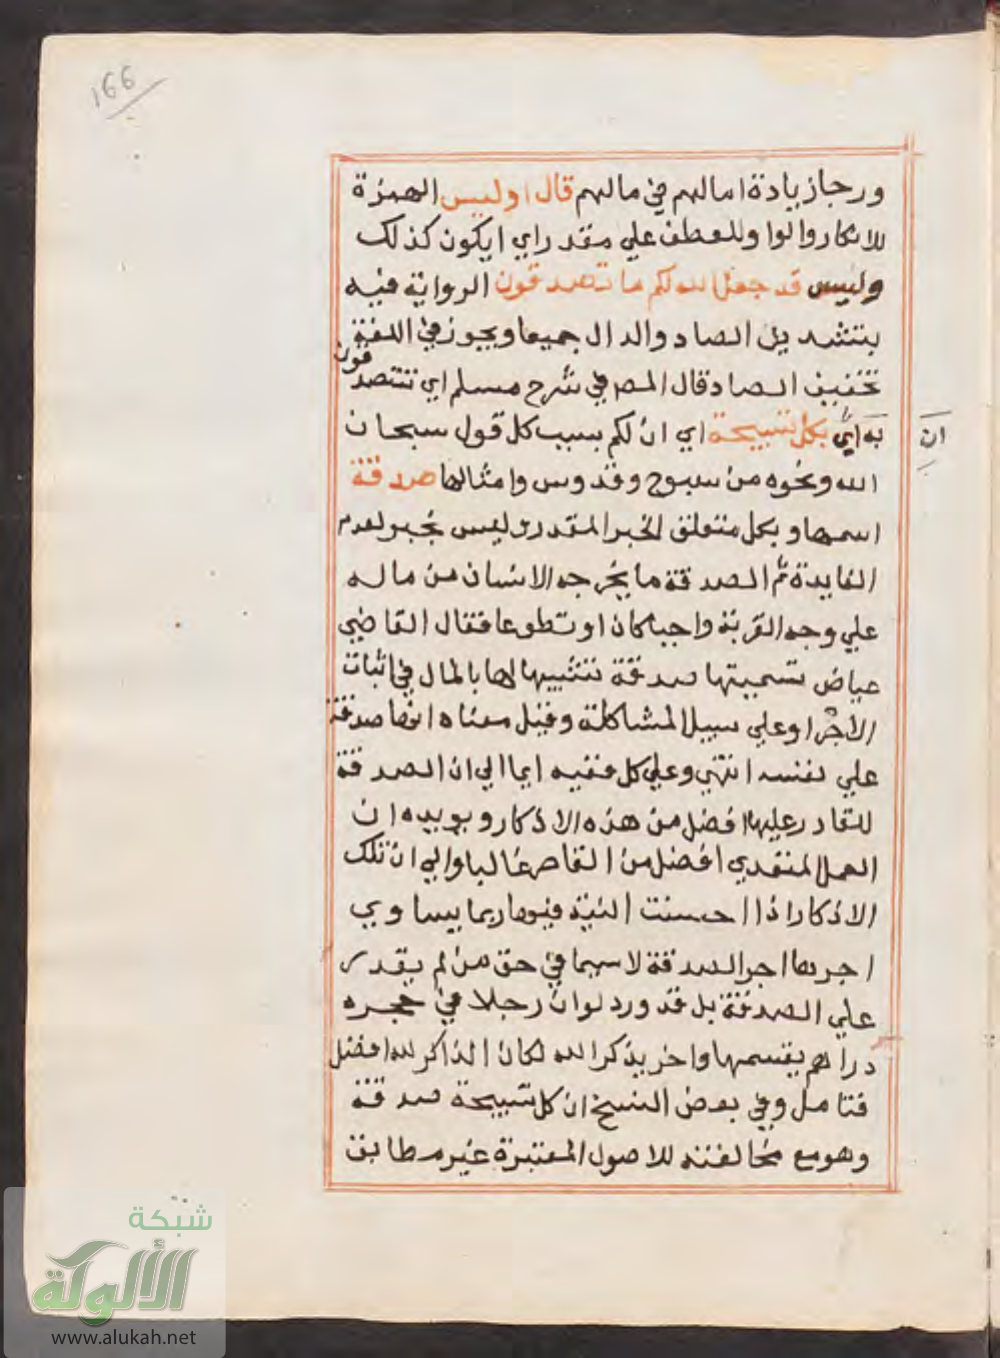 166
ورجا زيادة امالهم في مالهم قال اوليس الهمزة
للانكار والواو للعطف علي مقدر اي ايكون كذلك
وليس قد جعل الله لكم ما تصدقون الرواية فيه
بتشديد الصاد والدال جميعا ويجوز في اللغة
تخفيف الصاد قال المصر في شرح مسلم اي تتصدقون
به اي بكل تسبيحة اي ان لكم بسبب كل قول سبحان
ان
الله ونحوه من سبوح وقدوس وامثالها صدقة
اسمها وبكل متعلق الخبر المقدر وليس بخبر لعدم
الفايدة ثم الصدقة ما يخرجه الانسان من ماله
علي وجه القربة واجبا كان او تطوعا فقال القاضي
عياض تسميتها صدقة تشبيها لها بالمال في اثبات
الاجر او علي سبيل المشاكلة وقيل معناه انها صدقة
علي نفسه انتهي وعلي كل ففيه ايما الي ان الصدقة
للقادر عليها افضل من هذه الاذكار ويويده ان
العمل المتعدي افضل من القاصر غالبا والي ان تلك
الاذكار اذا احسنت النية فيها ربما يساوي
اجرها اجر الصدقة لا سيما في حق من لم يقدر
علي الصدقة بل قد ورد لو ان رجلا في حجره
دراهم يقسمها واخر يذكر الله لكان الذاكر لله افضل
فتامل وفي بعض النسخ ان كل تسبيحة صدقة
وهو مع مخالفته للاصول المعتبرة غير مطابق
شبكة
الألوكة
www.alukah.net